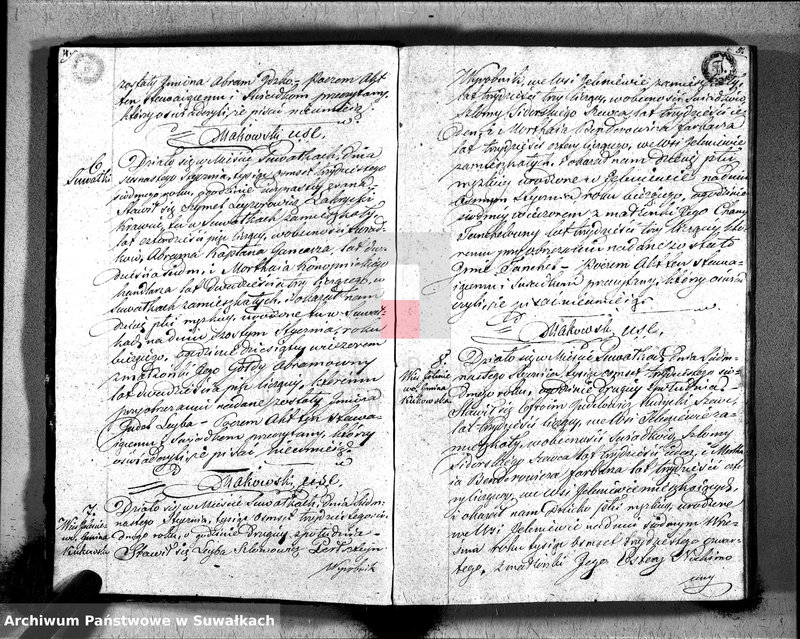 zostały Imiona Abram Poczem Akt
ten Stawaiącemu i Świadkom przeczytany,
który oświadczyli, że pisać nieumieią
Makowski, usc,
6.
Suwałki
Działo się w Mieście Suwałkach, dnia
siódmego roku, o godzinie iedynastey zrana
Stawił się Szymel Leyzorowicz
krawiec, tu w Suwałkach zamieszkały,
lat czterdzieści pięć liczący, w obecności Świad-
ków, Abrama Kaplana lat dwa-
dzieścia siedm, i Mortchaia Konopnickiego
handlarza lat dwadzieścia trzy liczącego, w
Suwałkach zamieszkałych, i okazał nam
dziecię płci męzkiey, urodzone tu w Suwał-
kach, na dniu szóstym Stycznia, roku
bieżącego, o godzinie dziesiątey wieczorem
z małżonki Jego Gołdy Abramowny
lat dwadzieścia pięć liczącey, któremu
przy obrzezaniu nadane zostały Imiona
Judel Leyba Poczem Akt ten Stawa-
iącemu i Świadkom przeczytany, który
oświadczyli że pisać nieumieią
Makowski, usc,
7.
Wieś Jelenie-
wo Gmina
Kukowska
Działo się w Mieście Suwałkach, dnia siedm-
nastego Stycznia, tysiąc ośmset trzydziestego sió-
dmego roku, o godzinie drugiey z południa
Stawił się Leyba Szlomowicz
Wyrobnik
Wyrobnik, we Wsi Jeleniewie zamieszkały,
lat trzydzieści trzy liczący, w obecności Świadków
Szlomy Sidorskiego Szewca, lat trzydzieści
i Mortchaia Bendorowicza farbarza
lat trzydzieści cztery liczący, we Wsi Jeleniewie
zamieszkałych. i okazał nam dziecię płci
męzkiey urodzone w Jeleniewie na dniu
Stycznia roku bieżącego, o godzinie
wieczorem z małżonki Jego Chany
lat trzydzieści trzy liczącey któ-
remu przy obrzezaniu nadane zostało
Imie Poczem Akt ten Stawa-
iącemu i Świadkom przeczytany, który oświad-
czyli, że pisać nieumieią
Makowski, usc,
8.
Wieś Jelenie-
wo Gmina
Kukowska
Działo się w Mieście Suwałkach, Dnia siedm-
nastego Stycznia tysiąc ośmset trzydziestego sió-
dmego roku, o godzinie drugiey z południa
Stawił się Efroim Szewc,
lat trzydzieści liczący, we Wsi Jeleniewie za-
mieszkały, w obecności Świadków, Szlomy
Sidorskiego Szewca lat trzydzieści i Mortcha-
ia Bendorowicza farbarza lat trzydzieści czte-
ry liczący, we Wsi Jeleniewie mieszkaiących
i okazał nam Dziecko płci męzkiey, urodzone
we Wsi Jeleniewie na dniu siódmym Wrze-
śnia roku tysiąc ośmset trzydziestego czwar-
tego, z małżonki Jego Estery Nochimo
wny
Archiwum Państwowe w Suwałkach